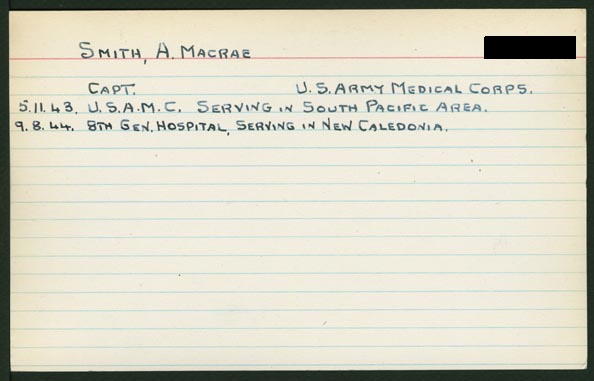 SMITH, A. MACRAE
CAPT. U.S. ARMY MEDICAL CORPS.
5.11.43. U.S.A.M.C. SERVING IN SOUTH PACIFIC AREA.
9.8.44. 8TH GEN. HOSPITAL, SERVING IN NEW CALEDONIA.